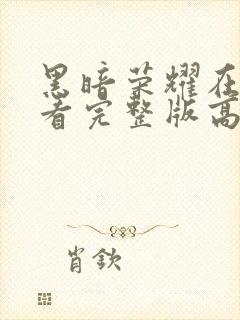 黑暗荣耀在
看完整版高
肖钦